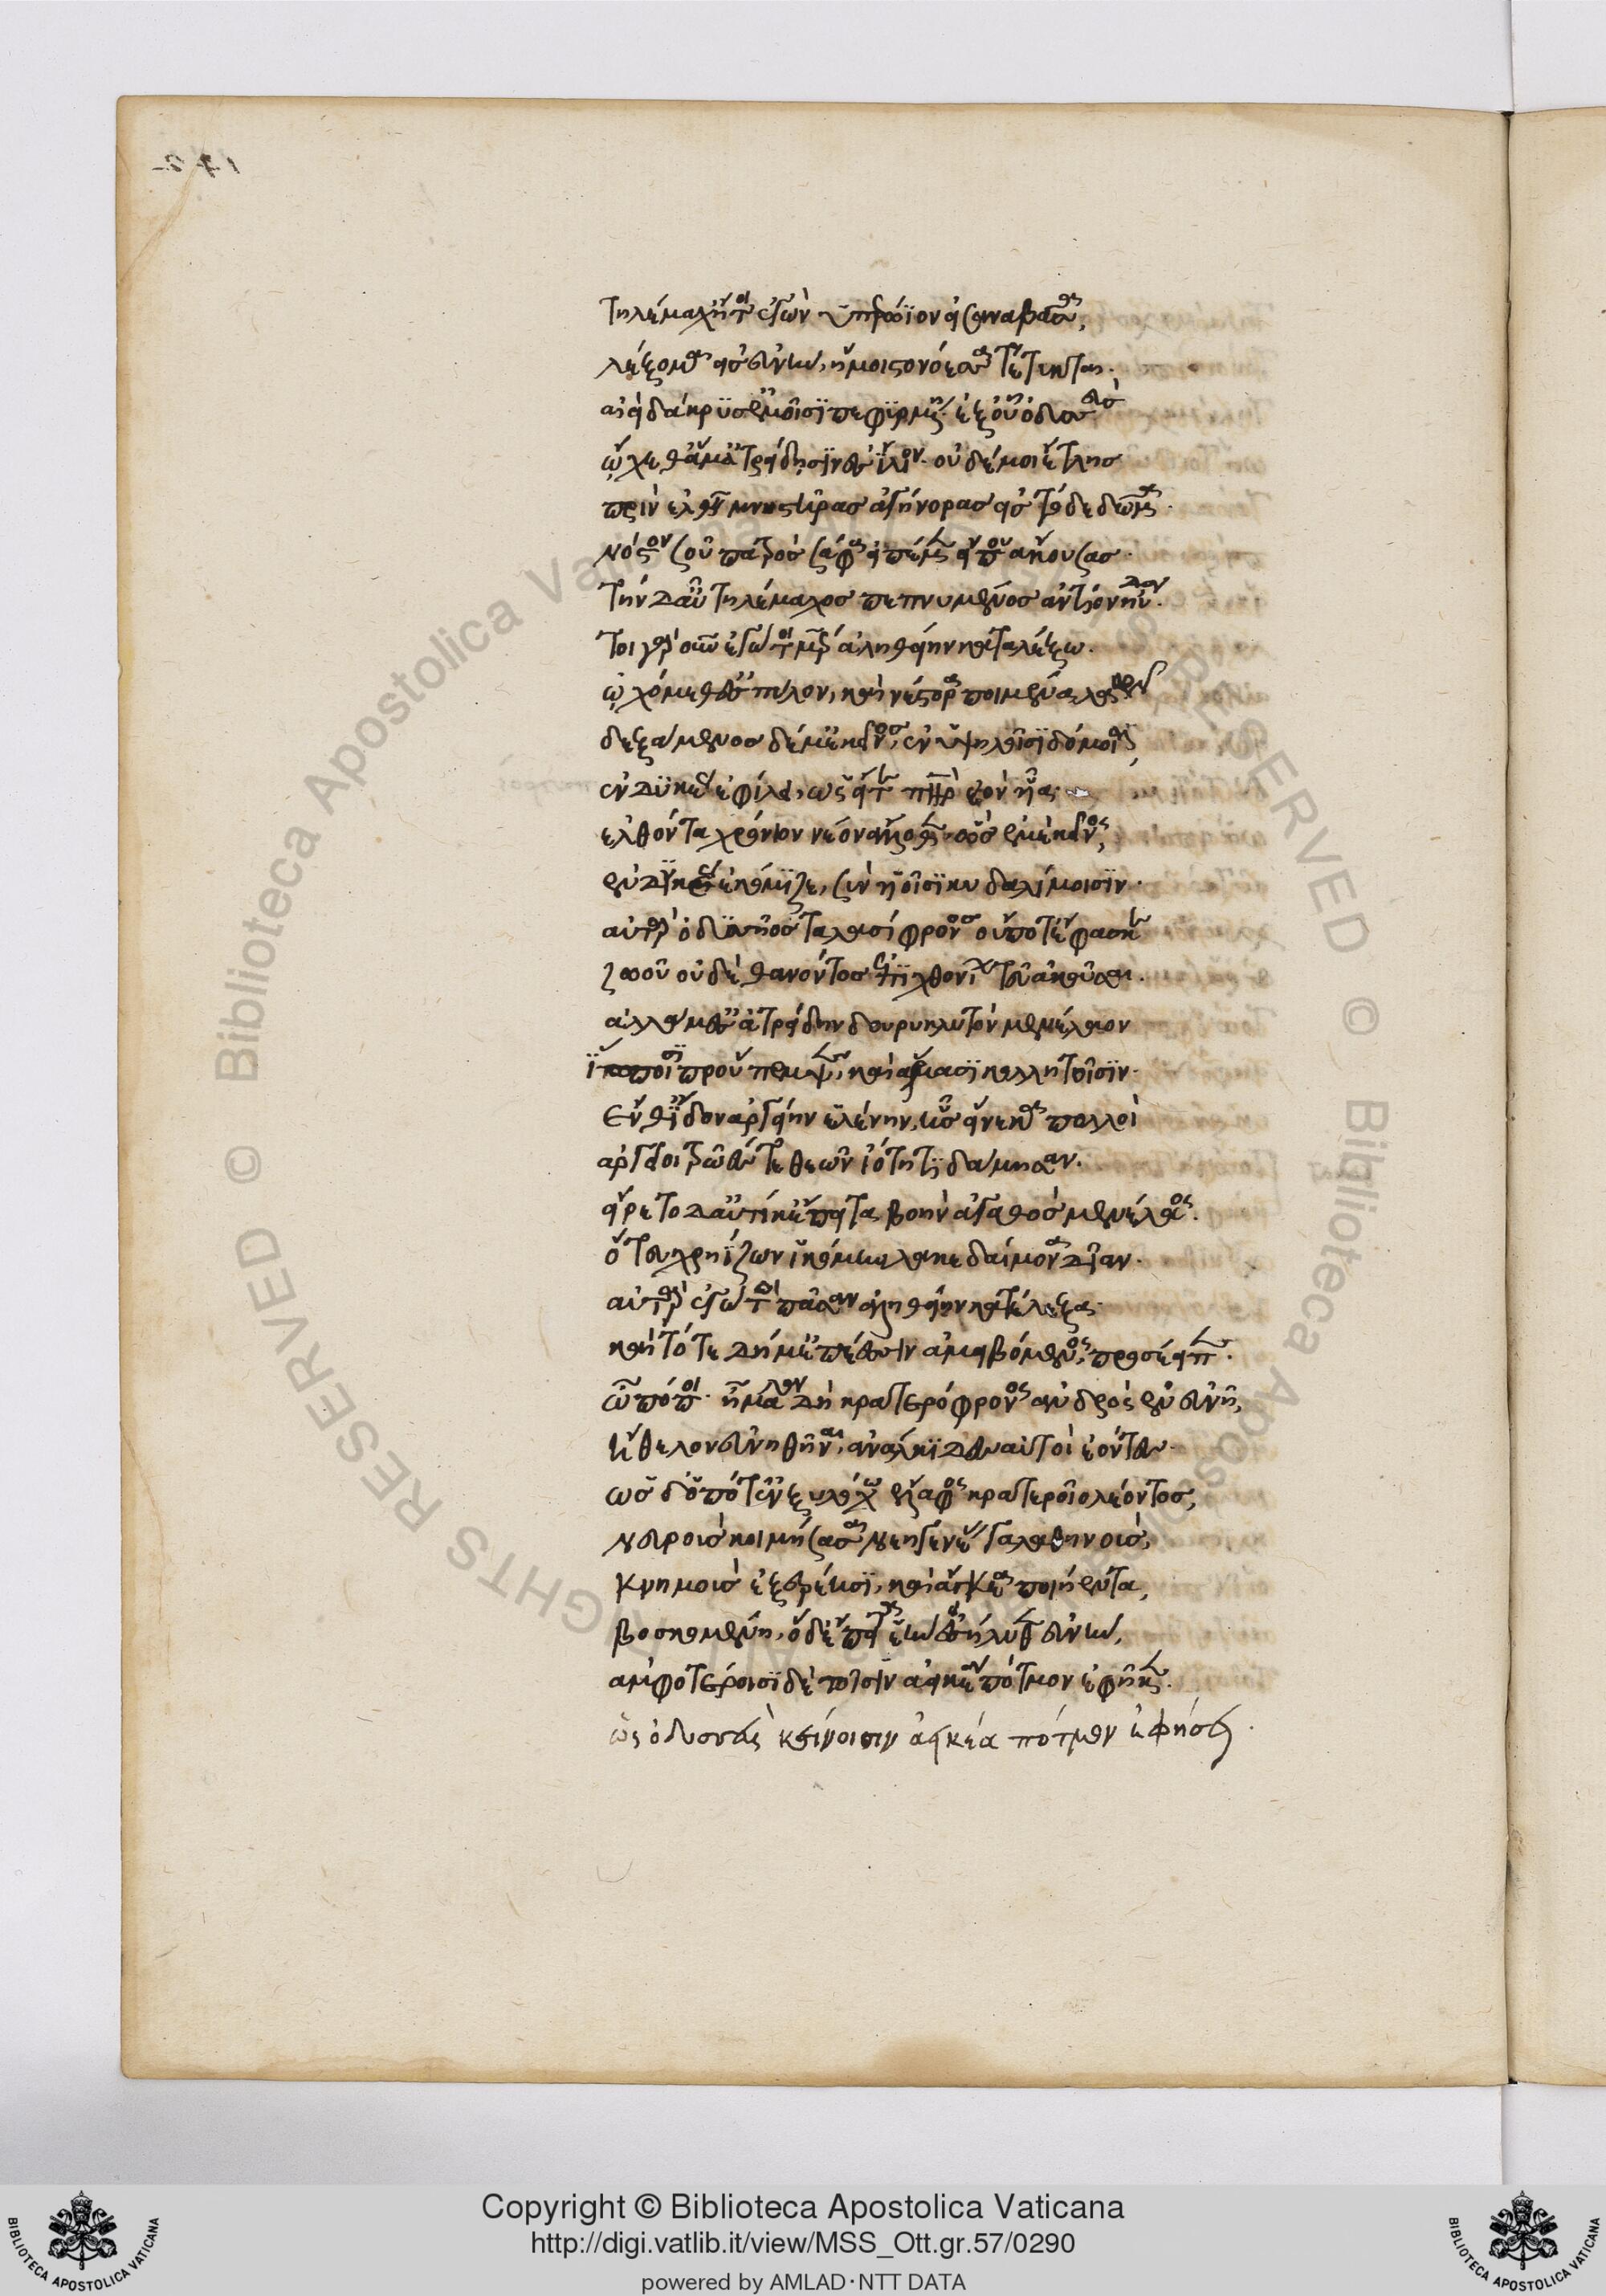 Τηλέμαχ' ἤτοι ἐγὼν ὑπερώϊον εἰσαναβᾶσα,
λέξομαι εἰς εὐνὴν, ἥ μοι στονόεσσα τέτυκται.
αἰεὶ δάκρυσ' ἐμοῖσι πεφυρμένη. ἐξ οὗ ὀδυσσεὺς
ᾤχεθ' ἅμ' ἀτρείδησιν ἐς ἴλιον. οὐδέ μοι ἔτλης
πρὶν ἐλθεῖν μνηστῆρας ἀγήνορας εἰς τόδε δῶμα.
νόστον σοῦ πατρὸς σάφα εἰπέμεν εἴ που ἄκουσας.
Τὴν δ' αὖ τηλέμαχος πεπνυμένος ἀντίον ηὔδα.
Τοιγὰρ ἐγώ τοι μῆτερ ἀληθείην καταλέξω.
ᾠχόμεθ' ἔς τε πύλον, καὶ νέστορα ποιμένα λαῶν
δεξάμενος δέ με κεῖνος, ἐν ὑψηλοῖσι δόμοισι,
ἐνδυκέως ἐφίλει, ὡς εἴ τε πατὴρ ἑὸν υἷα.
ἐλθόντα χρόνιον νέον ἄλλοθεν. ὣς ἐμὲ κεῖνος,
ἐνδυκέως ἐκόμιζε, σὺν υἱοῖσι κυδαλίμοισιν.
αὐτὰρ ὀδυσσῆος ταλασίφρονος οὔποτ' ἔφασκε
ζωοῦ οὐδὲ θανόντος ἐπιχθονίων του ἀκοῦσαι.
ἀλλά μ' ἐς ἀτρείδην δουρικλυτὸν μενέλαον
ἵπποισι προὔπεμψε, καὶ ἅρμασι κολλητοῖσιν.
Ἔνθ' ἴδον ἀργείην ἑλένην, ἧς εἵνεκα πολλοὶ
ἀργεῖοι τρῶές τε θεῶν ἰότητι δάμησαν.
εἴρετο δ' αὐτίκ' ἔπειτα βοὴν ἀγαθὸς μενέλαος.
ὅττευ χρηΐζων ἱκόμην λακεδαίμονα δῖαν.
αὐτὰρ ἐγώ τοι πᾶσαν ἀληθείην κατέλεξα.
καὶ τότε δή μ' ἐπέεσσιν ἀμειβόμενος, προσέειπε.
ὢ πόποι. ἦ μάλα δὴ κρατερόφρονος ἀνδρὸς ἐν εὐνῇ,
ἤθελον εὐνηθῆναι, ἀνάλκιδες αὐτοὶ ἐόντες.
ὡς δ' ὁπότ' ἐν ξυλόχῳ ἔλαφος κρατεροῖο λέοντος,
νεβροὺς κοιμήσασα νεηγενέας γαλαθηνοὺς,
κνημοὺς ἐξερέῃσι, καὶ ἄγκεα ποιήεντα,
βοσκομένη, ὁ δ' ἔπειτα ἑὴν εἰσήλυθεν εὐνὴν,
ἀμφοτέροισι δὲ τοῖσιν ἀεικέα πότμον ἐφῆκεν.
ὣς ὀδυσσεὺς κείνοισιν ἀεικέα πότμον ἐφήσει.
Copyright © Biblioteca Apostolica Vaticana
http://digi.vatlib.it/view/MSS_Ott.gr.57/0290
powered by AMLAD·NTT DATA